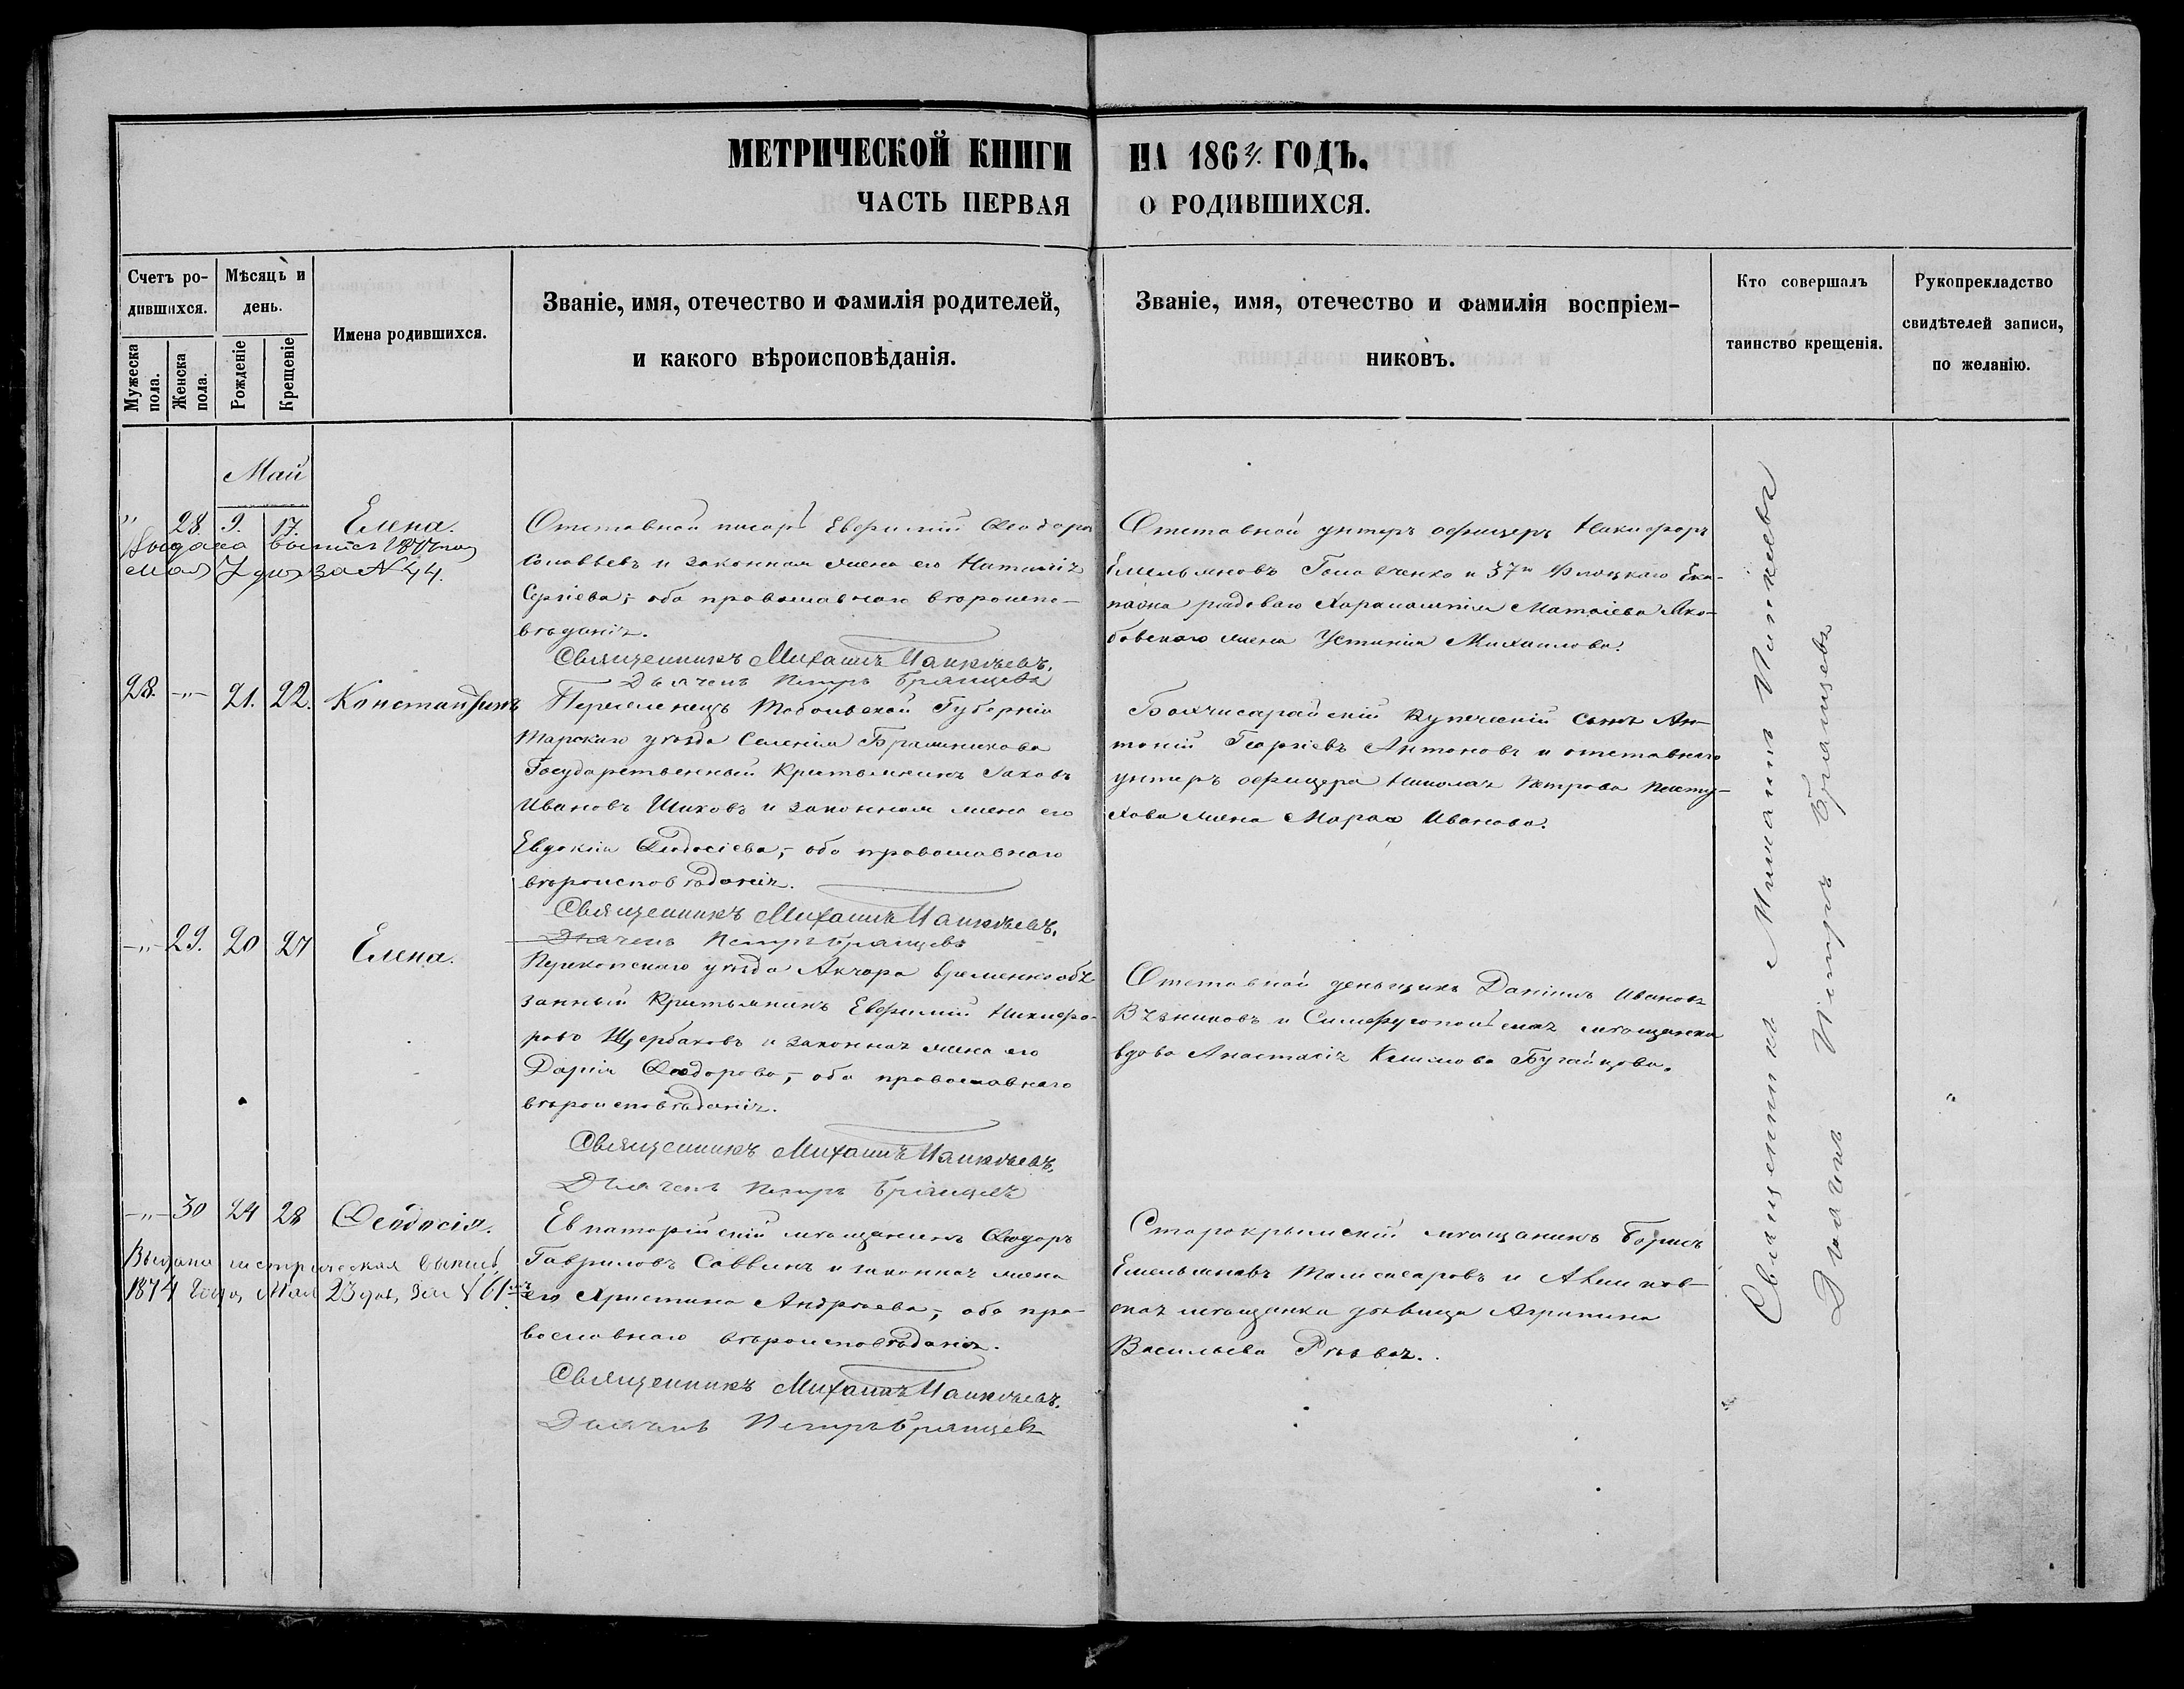 МЕТРИЧЕСКОЙ КНИГИ НА 1864. ГОДЪ.
ЧАСТЬ ПЕРВАЯ О РОДИВШИХСЯ.
Счетъ родившихся.
Мужеска пола.
Женска пола.
Мѣсяцъ и день.
Рожденіе
Крещеніе
Имена родившихся.
Званіе, имя, отечество и фамилія родителей,
и какого вѣроисповѣданія.
Званіе, имя, отечество и фамилія воспріем-
никовъ.
Кто совершалъ
таинство крещенія.
Рукоприкладство
свидѣтелей записи,
по желанію.
Май
" 28. 9. 17. Елена.
Выдана
мая 7 дня за № 44.
Отставной писарь Евфимій Ѳеодоровъ
Соловьевъ и законная жена его Наталія
Сергіева; оба православнаго вѣроиспо-
вѣданія.
Священникъ Михаилъ
Дьячекъ Петръ Брянцевъ
Отставной унтеръ офицеръ Никифоръ
Емельяновъ Головченко и 37го Флоцкаго Еки-
пажа рядоваго Харалампія Матвіева Яко-
бовскаго жена Устинія Михаилова.
28. -"- 21. 22. Константинъ
Переселенецъ Тобольской Губерніи
Тарскаго уѣзда Селенія
Государственный Крестьянинъ Іаковъ
Ивановъ Шиховъ и законная жена его
Евдокія Ѳеодосіева, оба православнаго
вѣроисповѣданія.
Священникъ Михаилъ
Дьячекъ Петръ Брянцевъ
Бахчисарайскій Купеческій Сынъ Ан-
тоній Георгіевъ Антоновъ и отставнаго
унтеръ офицера Николая Петрова Пасту-
хова жена Марѳа Иванова.
-"- 29. 20 27 Елена.
Перекопскаго уѣзда Акчора временнообя-
занный Крестьянинъ Евфимій Никифо-
ровъ Щербаковъ и законная жена его
Дарія Ѳеодорова, оба православнаго
вѣроисповѣданія.
Священникъ Михаилъ
Дьячекъ Петръ Брянцевъ
Отставной деньщикъ Даніилъ Ивановъ
и Симферопольская мѣщанка
вдова Анастасія Климова Бугайцова.
-"- 30 24 28 Ѳеодосія.
Выдана метрическая выпись
1874 года, Мая 23 дня, за № 61мъ
Евпаторійскій мѣщанинъ Ѳеодоръ
Гавриловъ Саввинъ и законная жена
его Христина Андреева, оба пра-
вославнаго вѣроисповѣданія.
Священникъ Михаилъ
Дьячекъ Петръ Брянцевъ
Старокрымскій мѣщанинъ Борисъ
Емельяновъ и
ская мѣщанка дѣвица Агрипина
Васильева
Священникъ Михаилъ
Дьячекъ Петръ Брянцевъ